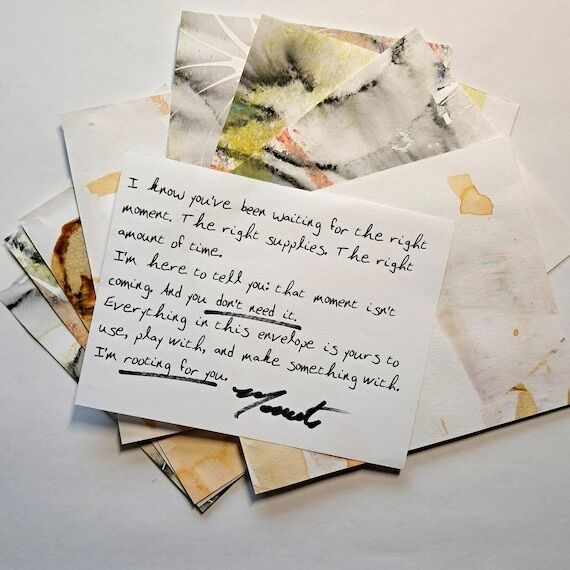 I know you've been waiting for the right
moment. The right supplies. The right
amount of time.
I'm here to tell you: that moment isn't
coming. And you don't need it.
Everything in this envelope is yours to
use, play with, and make something with.
I'm rooting for you.